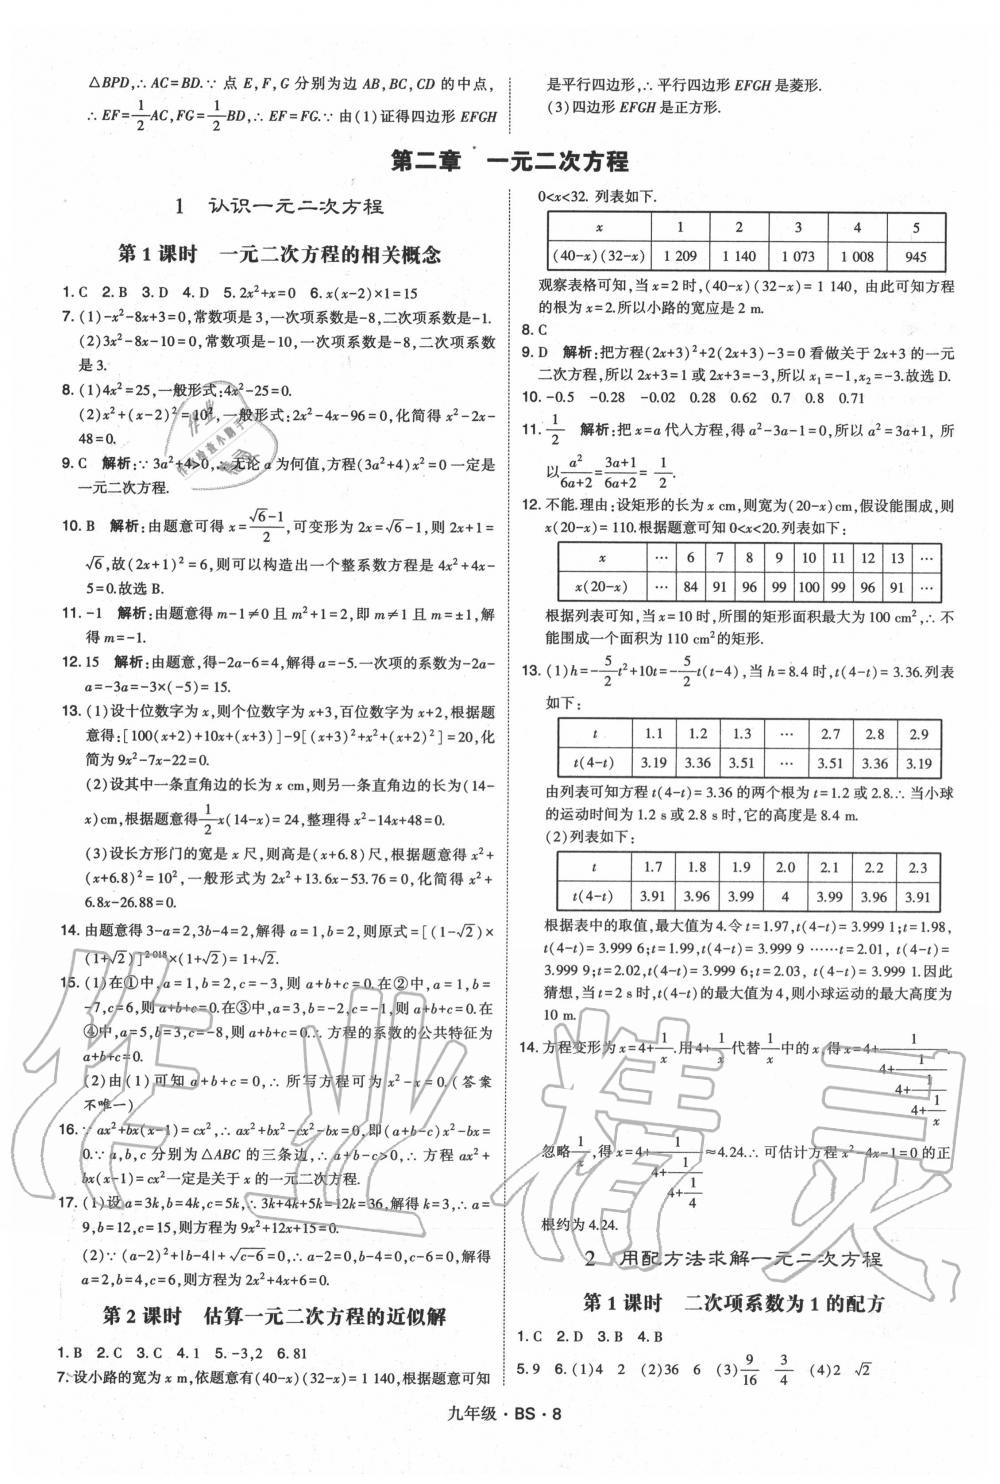 △BPD,∴ AC=BD.∵ 点 E,F,G 分别为边 AB,BC,CD 的中点,
∴ EF=1/2 AC,FG=1/2 BD,∴ EF=FG.∵ 由(1)证得四边形 EFGH
是平行四边形,∴ 平行四边形 EFGH 是菱形.
(3)四边形 EFGH 是正方形.
第二章 一元二次方程
1 认识一元二次方程
第 1 课时 一元二次方程的相关概念
1. C 2. B 3. D 4. D 5. 2x²+x=0 6. x(x-2)×1=15
7. (1)-x²-8x+3=0,常数项是 3,一次项系数是-8,二次项系数是-1.
(2)3x²-8x-10=0,常数项是-10,一次项系数是-8,二次项系数
是 3.
8. (1)4x²=25,一般形式:4x²-25=0.
(2)x²+(x-2)²=10²,一般形式:2x²-4x-96=0,化简得 x²-2x-
48=0.
9. C 解析:∵ 3a²+4>0,∴ 无论 a 为何值,方程(3a²+4)x²=0 一定是
一元二次方程.
10. B 解析:由题意可得 x=(√6-1)/2,可变形为 2x=√6-1,则 2x+1=
√6,故(2x+1)²=6,则可以构造出一个整系数方程是 4x²+4x-
5=0.故选 B.
11. -1 解析:由题意得 m-1≠0 且 m²+1=2,即 m≠1 且 m=±1,解
得 m=-1.
12. 15 解析:由题意,得-2a-6=4,解得 a=-5.一次项的系数为-2a-
a=-3a=-3×(-5)=15.
13. (1)设十位数字为 x,则个位数字为 x+3,百位数字为 x+2,根据题
意得:[100(x+2)+10x+(x+3)]-9[(x+3)²+x²+(x+2)²]=20,化
简为 9x²-7x-22=0.
(2)设其中一条直角边的长为 x cm,则另一条直角边的长为(14-
x)cm,根据题意得1/2 x(14-x)=24,整理得 x²-14x+48=0.
(3)设长方形门的宽是 x 尺,则高是(x+6.8)尺,根据题意得 x²+
(x+6.8)²=10²,一般形式为 2x²+13.6x-53.76=0,化简得 x²+
6.8x-26.88=0.
14. 由题意得 3-a=2,3b-4=2,解得 a=1,b=2,则原式=[(1-√2)×
(1+√2)]²⁰¹⁸×(1+√2)=1+√2.
15. (1)在①中,a=1,b=2,c=-3,则 a+b+c=0.在②中,a=1,b=
-7,c=6,则 a+b+c=0.在③中,a=3,b=-2,c=-1,则 a+b+c=0.在
④中,a=5,b=3,c=-8,则 a+b+c=0.∴ 方程的系数的公共特征为
a+b+c=0.
(2)由(1)可知 a+b+c=0,∴ 所写方程可为 x²-x=0.(答案
不唯一)
16. ∵ ax²+bx(x-1)=cx²,∴ ax²+bx²-cx²-bx=0,即(a+b-c)x²-bx=
0.∵ a,b,c 分别为△ABC 的三条边,∴ a+b-c>0,∴ 方程 ax²+
bx(x-1)=cx²一定是关于 x 的一元二次方程.
17. (1)设 a=3k,b=4k,c=5k,∴ 3k+4k+5k=12k=36,解得 k=3,∴ a=
9,b=12,c=15,则方程为 9x²+12x+15=0.
(2)∵ (a-2)²+|b-4|+√(c-6)=0,∴ a-2=0,b-4=0,c-6=0,解得
a=2,b=4,c=6,则方程为 2x²+4x+6=0.
第 2 课时 估算一元二次方程的近似解
1. B 2. C 3. C 4. 1 5. -3,2 6. 81
7. 设小路的宽为 x m,依题意有(40-x)(32-x)=1 140,根据题意可知
0<x<32. 列表如下.
x 1 2 3 4 5
(40-x)(32-x) 1 209 1 140 1 073 1 008 945
观察表格可知,当 x=2 时,(40-x)(32-x)=1 140, 由此可知方程
的根为 x=2.所以小路的宽应是 2 m.
8. C
9. D 解析:把方程(2x+3)²+2(2x+3)-3=0 看做关于 2x+3 的一元
二次方程,所以 2x+3=1 或 2x+3=-3,所以 x₁=-1,x₂=-3.故选 D.
10. -0.5 -0.28 -0.02 0.28 0.62 0.7 0.8 0.71
11. 1/2 解析:把 x=a 代入方程,得 a²-3a-1=0,所以 a²=3a+1, 所
以 a²/(6a+2)=(3a+1)/(6a+2)=1/2.
12. 不能.理由:设矩形的长为 x cm,则宽为(20-x)cm,假设能围成,则
x(20-x)=110.根据题意可知 0<x<20.列表如下:
x … 6 7 8 9 10 11 12 13 …
x(20-x) … 84 91 96 99 100 99 96 91 …
根据列表可知,当 x=10 时,所围的矩形面积最大为 100 cm²,∴ 不
能围成一个面积为 110 cm²的矩形.
13. (1)h=-5/2 t²+10t=-5/2 t(t-4),当 h=8.4 时,t(4-t)=3.36.列表
如下:
t 1.1 1.2 1.3 … 2.7 2.8 2.9
t(4-t) 3.19 3.36 3.51 … 3.51 3.36 3.19
由列表可知方程 t(4-t)=3.36 的两个根为 t=1.2 或 2.8.∴ 当小球
的运动时间为 1.2 s 或 2.8 s 时,它的高度是 8.4 m.
(2)列表如下:
t 1.7 1.8 1.9 2.0 2.1 2.2 2.3
t(4-t) 3.91 3.96 3.99 4 3.99 3.96 3.91
根据表中的取值,最大值为 4.令 t=1.97,t(4-t)=3.999 1;t=1.98,
t(4-t)=3.999 6;t=1.99,t(4-t)=3.999 9 ……t=2.01, t(4-t)=
3.999 9;t=2.02,t(4-t)=3.999 6;t=2.03, t(4-t)=3.999 1.因此
猜想,当 t=2 s 时,t(4-t)的最大值为 4,则小球运动的最大高度为
10 m.
14. 方程变形为 x=4+1/x.用 4+1/x 代替 1/x 中的 x 得 x=4+1/(4+1/(4+1/(4+1/x))).
忽略 1/x,得 x=4+1/(4+1/(4+1/4))≈4.24.∴ 可估计方程 x²-4x-1=0 的正
根约为 4.24.
2 用配方法求解一元二次方程
第 1 课时 二次项系数为 1 的配方
1. C 2. D 3. B 4. B
5. 9 6. (1)4 2 (2)36 6 (3)9/16 3/4 (4)2 √2
九年级·BS·8
作业精灵